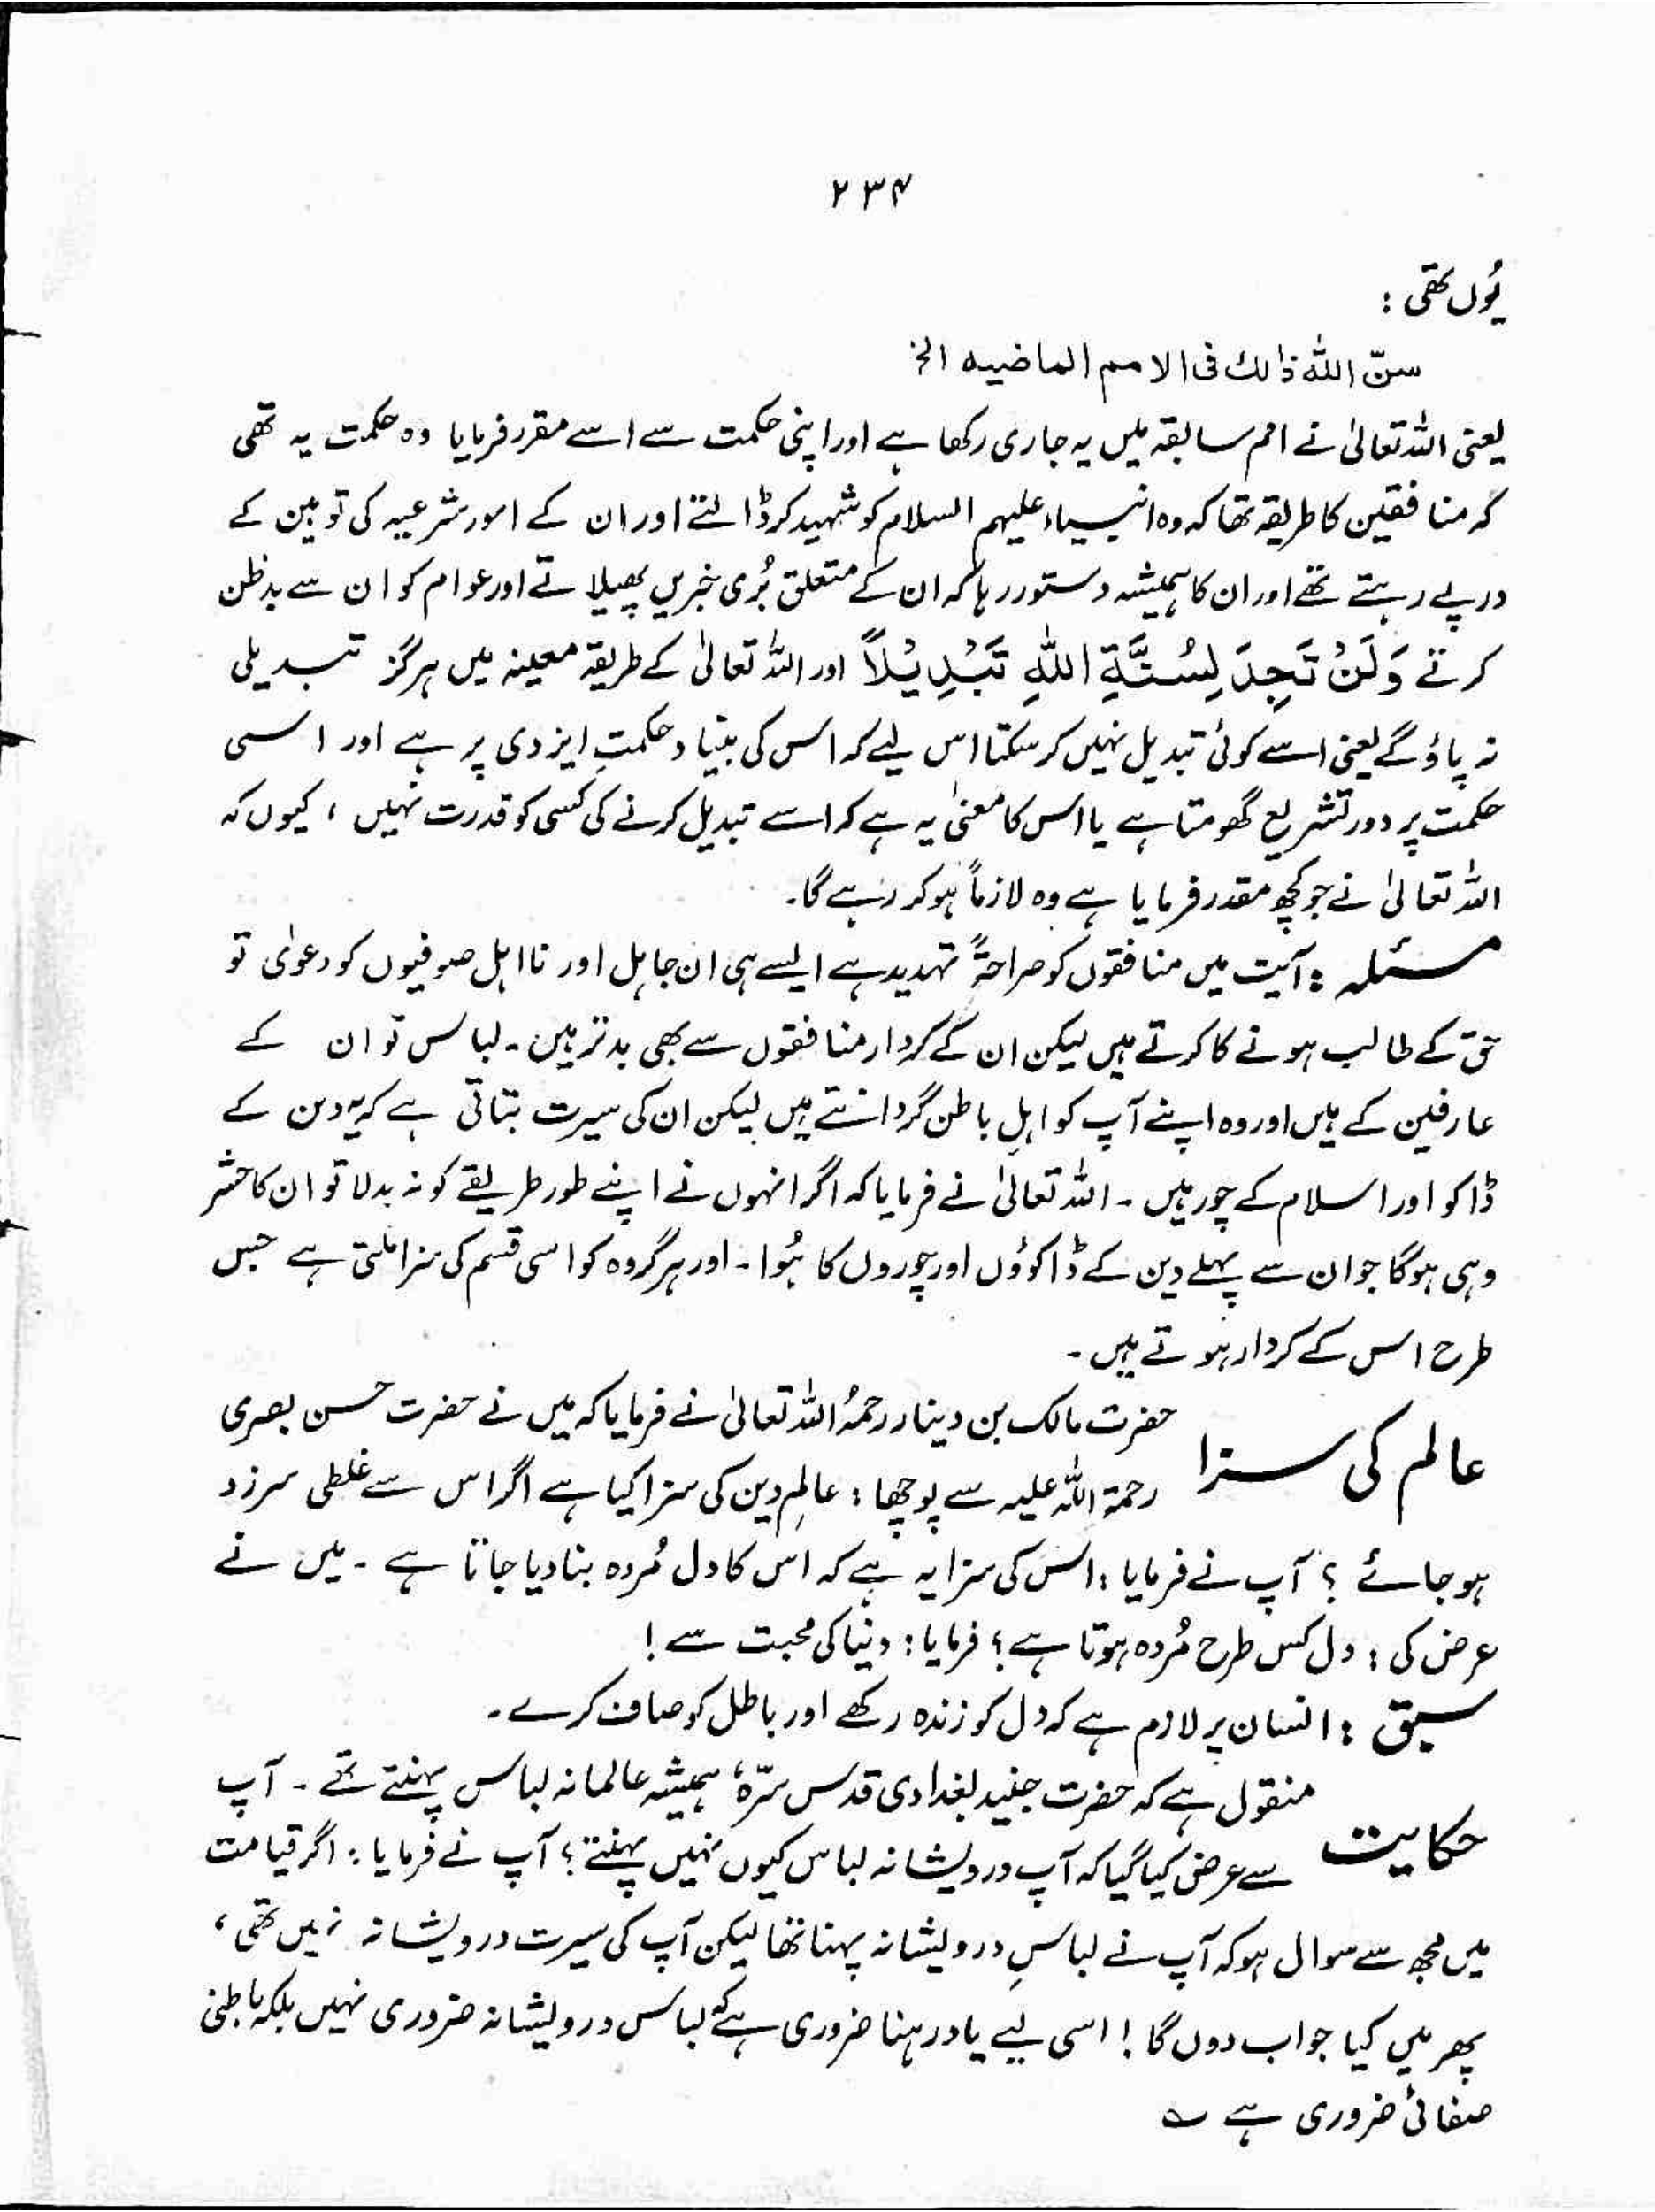 ۲۳۴
یُوں تھی :
سنّ اللہ ذالك فی الامم الماضیه الخ
یعنی اللہ تعالیٰ نے امم سابقہ میں یہ جاری رکھا ہے اور اپنی حکمت سے اسے مقرر فرمایا وہ حکمت یہ تھی
کہ منافقین کا طریقہ تھا کہ وہ انبیاء علیہم السلام کو شہید کر ڈالتے اور ان کے امور شرعیہ کی توہین کے
درپے رہتے تھے اور ان کا ہمیشہ دستور رہا کہ ان کے متعلق بُری خبریں پھیلاتے اور عوام کو ان سے بدظن
کرتے وَلَنْ تَجِدَ لِسُنَّةِ اللّٰهِ تَبْدِيْلاً اور اللہ تعالیٰ کے طریقہ معینہ میں ہرگز تبدیلی
نہ پاؤ گے یعنی اسے کوئی تبدیل نہیں کر سکتا اس لیے کہ اس کی بنیاد حکمتِ ایزدی پر ہے اور اسی
حکمت پر دورِ تشریع گھومتا ہے یا اس کا معنیٰ یہ ہے کہ اسے تبدیل کرنے کی کسی کو قدرت نہیں ، کیوں کہ
اللہ تعالیٰ نے جو کچھ مقدر فرمایا ہے وہ لازماً ہو کر رہے گا۔
مسئلہ : آیت میں منافقوں کو صراحۃً تہدید ہے ایسے ہی ان جاہل اور نااہل صوفیوں کو دعویٰ تو
حق کے طالب ہونے کا کرتے ہیں لیکن ان کے کردار منافقوں سے بھی بدتر ہیں۔ لباس تو ان کے
عارفین کے ہیں اور وہ اپنے آپ کو اہلِ باطن گردانتے ہیں لیکن ان کی سیرت بتاتی ہے کہ یہ دین کے
ڈاکو اور اسلام کے چور ہیں ۔ اللہ تعالیٰ نے فرمایا کہ اگر انہوں نے اپنے طور طریقے کو نہ بدلا تو ان کا حشر
وہی ہوگا جو ان سے پہلے دین کے ڈاکوؤں اور چوروں کا ہُوا ۔ اور ہر گروہ کو اسی قسم کی سزا ملتی ہے جس
طرح اس کے کردار ہوتے ہیں ۔
عالم کی سزا حضرت مالک بن دینار رحمہُ اللہ تعالیٰ نے فرمایا کہ میں نے حضرت حسن بصری
رحمۃ اللہ علیہ سے پوچھا : عالمِ دین کی سزا کیا ہے اگر اس سے غلطی سرزد
ہو جائے ؟ آپ نے فرمایا : اس کی سزا یہ ہے کہ اس کا دل مُردہ بنا دیا جاتا ہے ۔ میں نے
عرض کی : دل کس طرح مُردہ ہوتا ہے ؟ فرمایا : دنیا کی محبت سے !
سبق : انسان پر لازم ہے کہ دل کو زندہ رکھے اور باطل کو صاف کرے ۔
حکایت منقول ہے کہ حضرت جنید بغدادی قدس سرّہٗ ہمیشہ عالمانہ لباس پہنتے تھے ۔ آپ
سے عرض کیا گیا کہ آپ درویشانہ لباس کیوں نہیں پہنتے ؟ آپ نے فرمایا : اگر قیامت
میں مجھ سے سوال ہو کہ آپ نے لباسِ درویشانہ پہنا تھا لیکن آپ کی سیرت درویشانہ نہیں تھی ،
پھر میں کیا جواب دوں گا ! اسی لیے یاد رہنا ضروری ہے کہ لباس درویشانہ ضروری نہیں بلکہ باطنی
صفائی ضروری ہے ؎